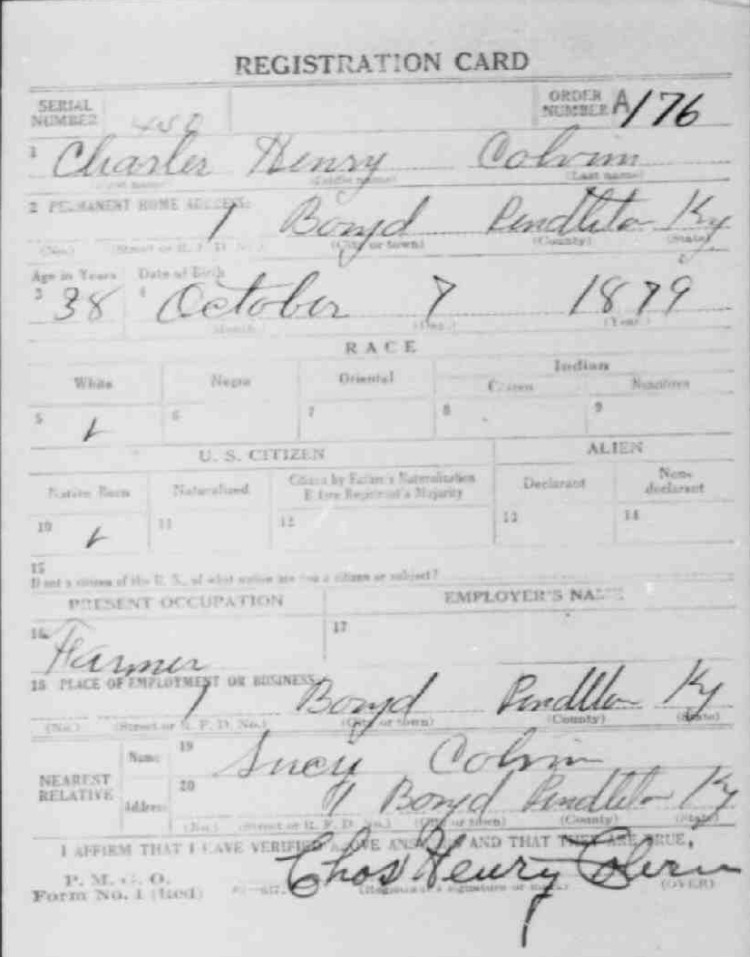 REGISTRATION CARD
SERIAL NUMBER 458 ORDER NUMBER A176
1 Charles Henry Colvin
(First name) (Middle name) (Last name)
2 PERMANENT HOME ADDRESS: 1 Boyd Pendleton Ky
(No.) (Street or R. F. D. No.) (City or town) (County) (State)
Age in Years Date of Birth
3 38 4 October 7 1879
(Month.) (Day.) (Year.)
RACE
White Negro Oriental Indian
Citizen Noncitizen
5 ✓ 6 7 8 9
U. S. CITIZEN ALIEN
Native Born Naturalized Citizen by Father's Naturalization Before Registrant's Majority Declarant Non-declarant
10 ✓ 11 12 13 14
15
If not a citizen of the U. S., of what nation are you a citizen or subject?
PRESENT OCCUPATION EMPLOYER'S NAME
16 Farmer 17
18 PLACE OF EMPLOYMENT OR BUSINESS: 1 Boyd Pendleton Ky
(No.) (Street or R. F. D. No.) (City or town) (County) (State)
NEAREST RELATIVE Name 19 Lucy Colvin
Address 20 1 Boyd Pendleton Ky
(No.) (Street or R. F. D. No.) (City or town) (County) (State)
I AFFIRM THAT I HAVE VERIFIED ABOVE ANSWERS AND THAT THEY ARE TRUE,
P. M. G. O.
Form No. 1 (Red) Chas Henry Colvin
(Registrant's signature or mark.) (OVER)